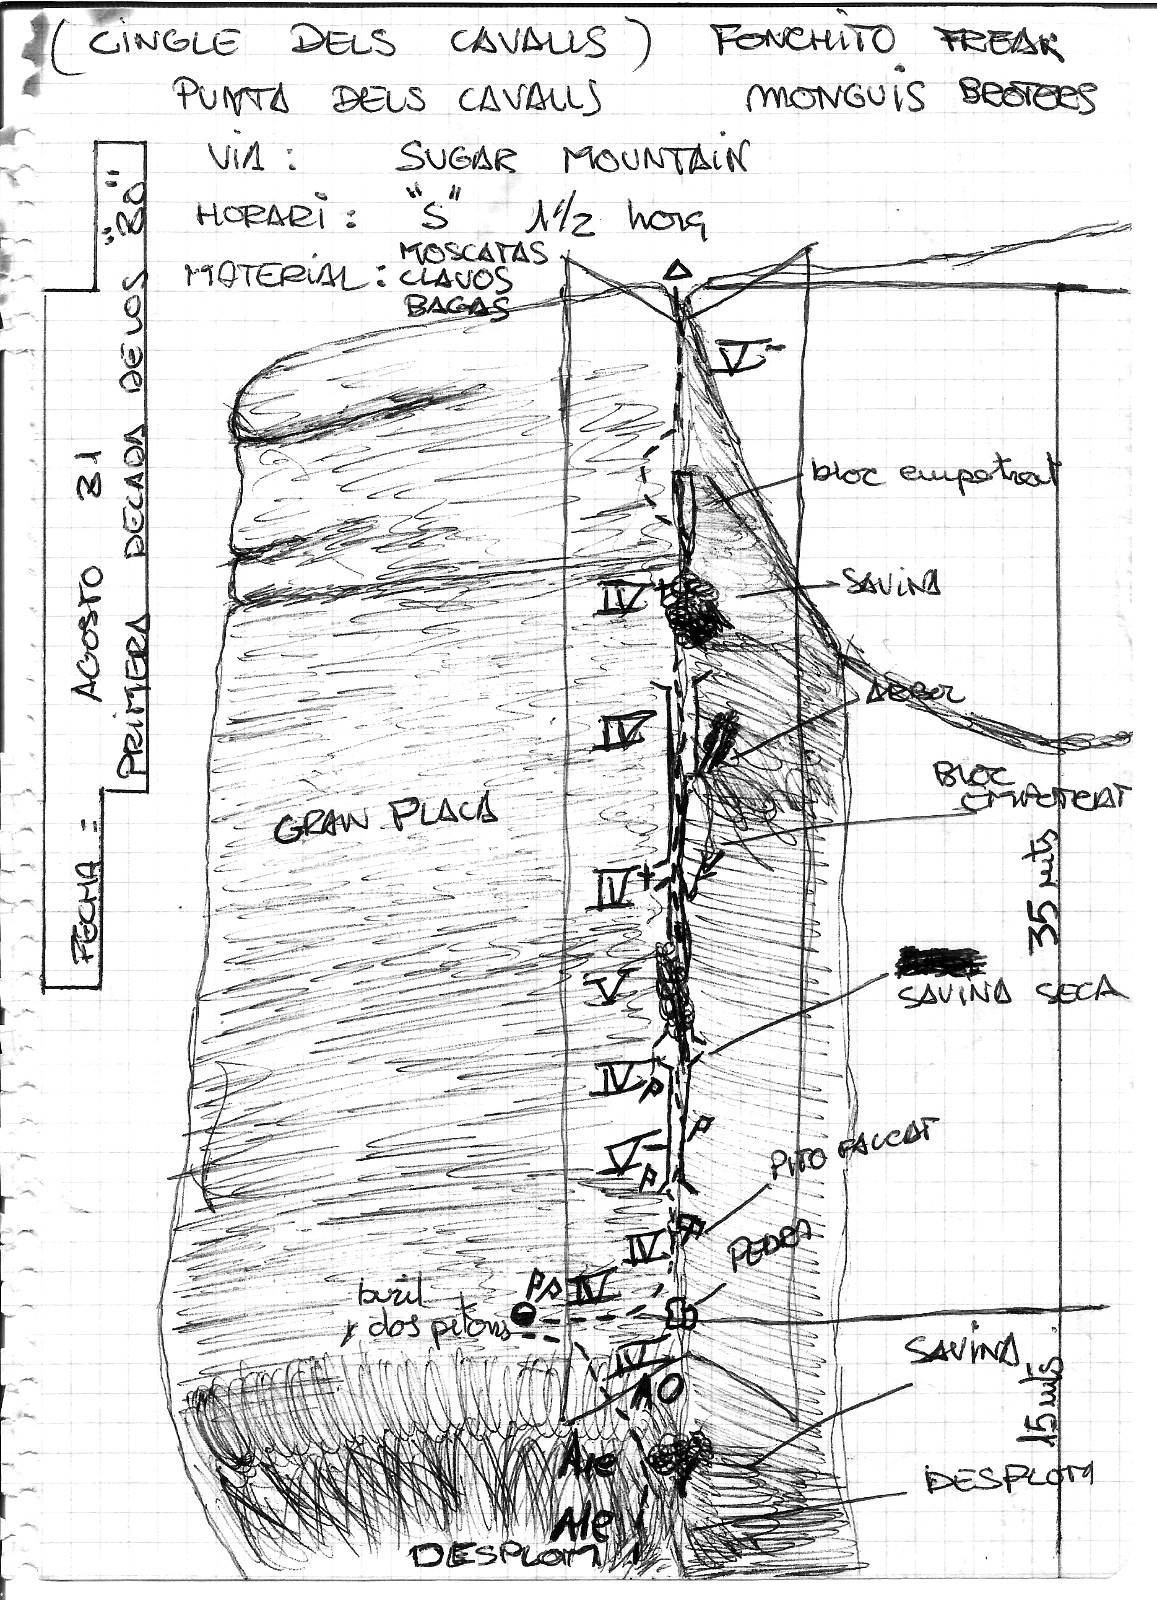 (CINGLE DELS CAVALLS) FONCHITO FREAK
PUNTA DELS CAVALLS MONGUIS BROTERS
VIA: SUGAR MOUNTAIN
HORARI: "S" 1 1/2 hora
MATERIAL: MOSCATAS
CLAVOS
BAGAS
FECHA: AGOSTO 81
PRIMERA DECADA DE LOS "80"
V-
bloc empotrat
IV+
SAVINA
IV
ARBOL
BLOC
EMPOTRAT
GRAN PLACA
IV+
35 mts
V
SAVINA SECA
IV
P
P
V-
P
PITO FALCAT
P
IV
PEDRA
PP IV
buril
y dos pitons
IV
SAVINA
AO
15 mts
A1e
DESPLOM
A1e
DESPLOM